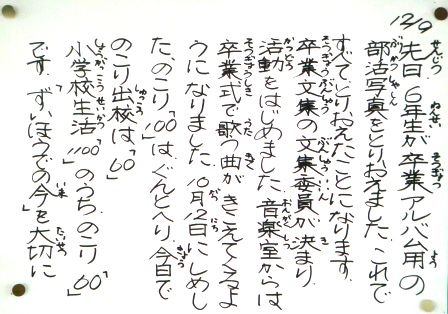 12/9
先日、6年生が卒業アルバム用の
部活写真をとりおえました。これで
すべてとりおえたことになります。
卒業文集の文集委員が決まり、
活動をはじめました。音楽室からは
卒業式で歌う曲がきこえてくるよ
うになりました。10月12日にしめし
た、のこり「100」は、ぐんとへり、今日で
のこり出校は、「60」
小学校生活「1100」のうち、のこり「60」
です。ずいほうでの「今」を大切に